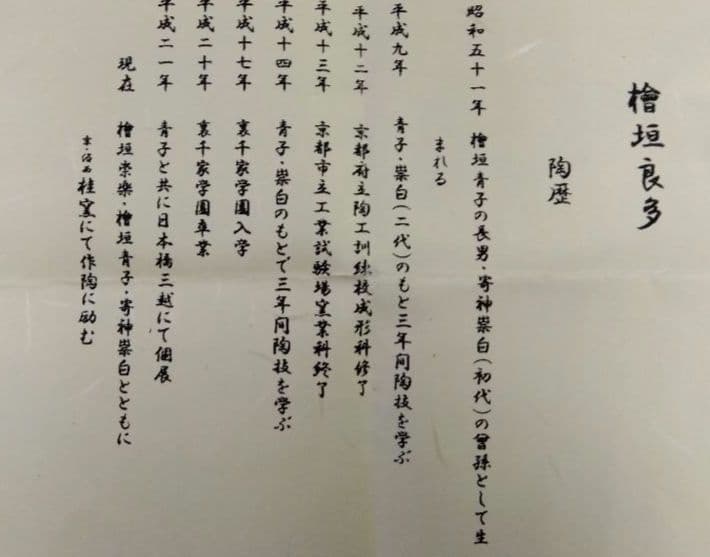 檜垣良多
陶歴
昭和五十一年 檜垣青子の長男・寄神崇白(初代)の曾孫として生
まれる
平成九年 青子・崇白(二代)のもと三年间陶技を学ぶ
平成十二年 京都府立陶工訓練校成形科修了
平成十三年 京都市立工業試験場窯業科終了
平成十四年 青子・崇白のもとで三年间陶技を学ぶ
平成十七年 裏千家学園入学
平成二十年 裏千家学園卒業
平成二一年 青子と共に日本橋三越にて個展
現在 檜垣崇楽・檜垣青子・寄神崇白とともに
京・洛西 桂窯にて作陶に励む